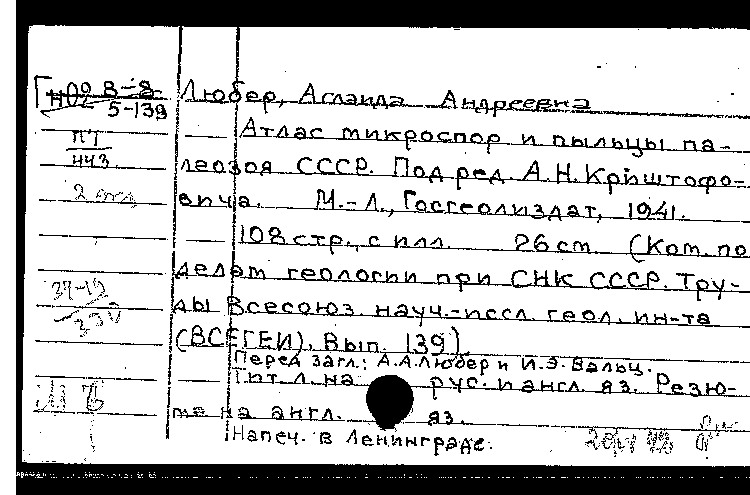 Н02 8-8 Любер, Аглаида Андреевна
5-139
Атлас микроспор и пыльцы па-
ПТ
443
леозоя СССР. Под ред. А.Н. Криштофо-
2 экз
вича. М.-Л., Госгеолиздат, 1941.
108 стр., с илл. 26 см. (Ком. по
делам геологии при СНК СССР. Тру-
39-19
330
ды Всесоюз. науч.-иссл. геол. ин-та
(ВСЕГЕИ). Вып. 139)
Перед загл.: А.А. Любер и И.Э. Вальц.
Тит. л. на рус. и англ. яз. Резю-
ме на англ. яз.
Напеч. в Ленинграде.